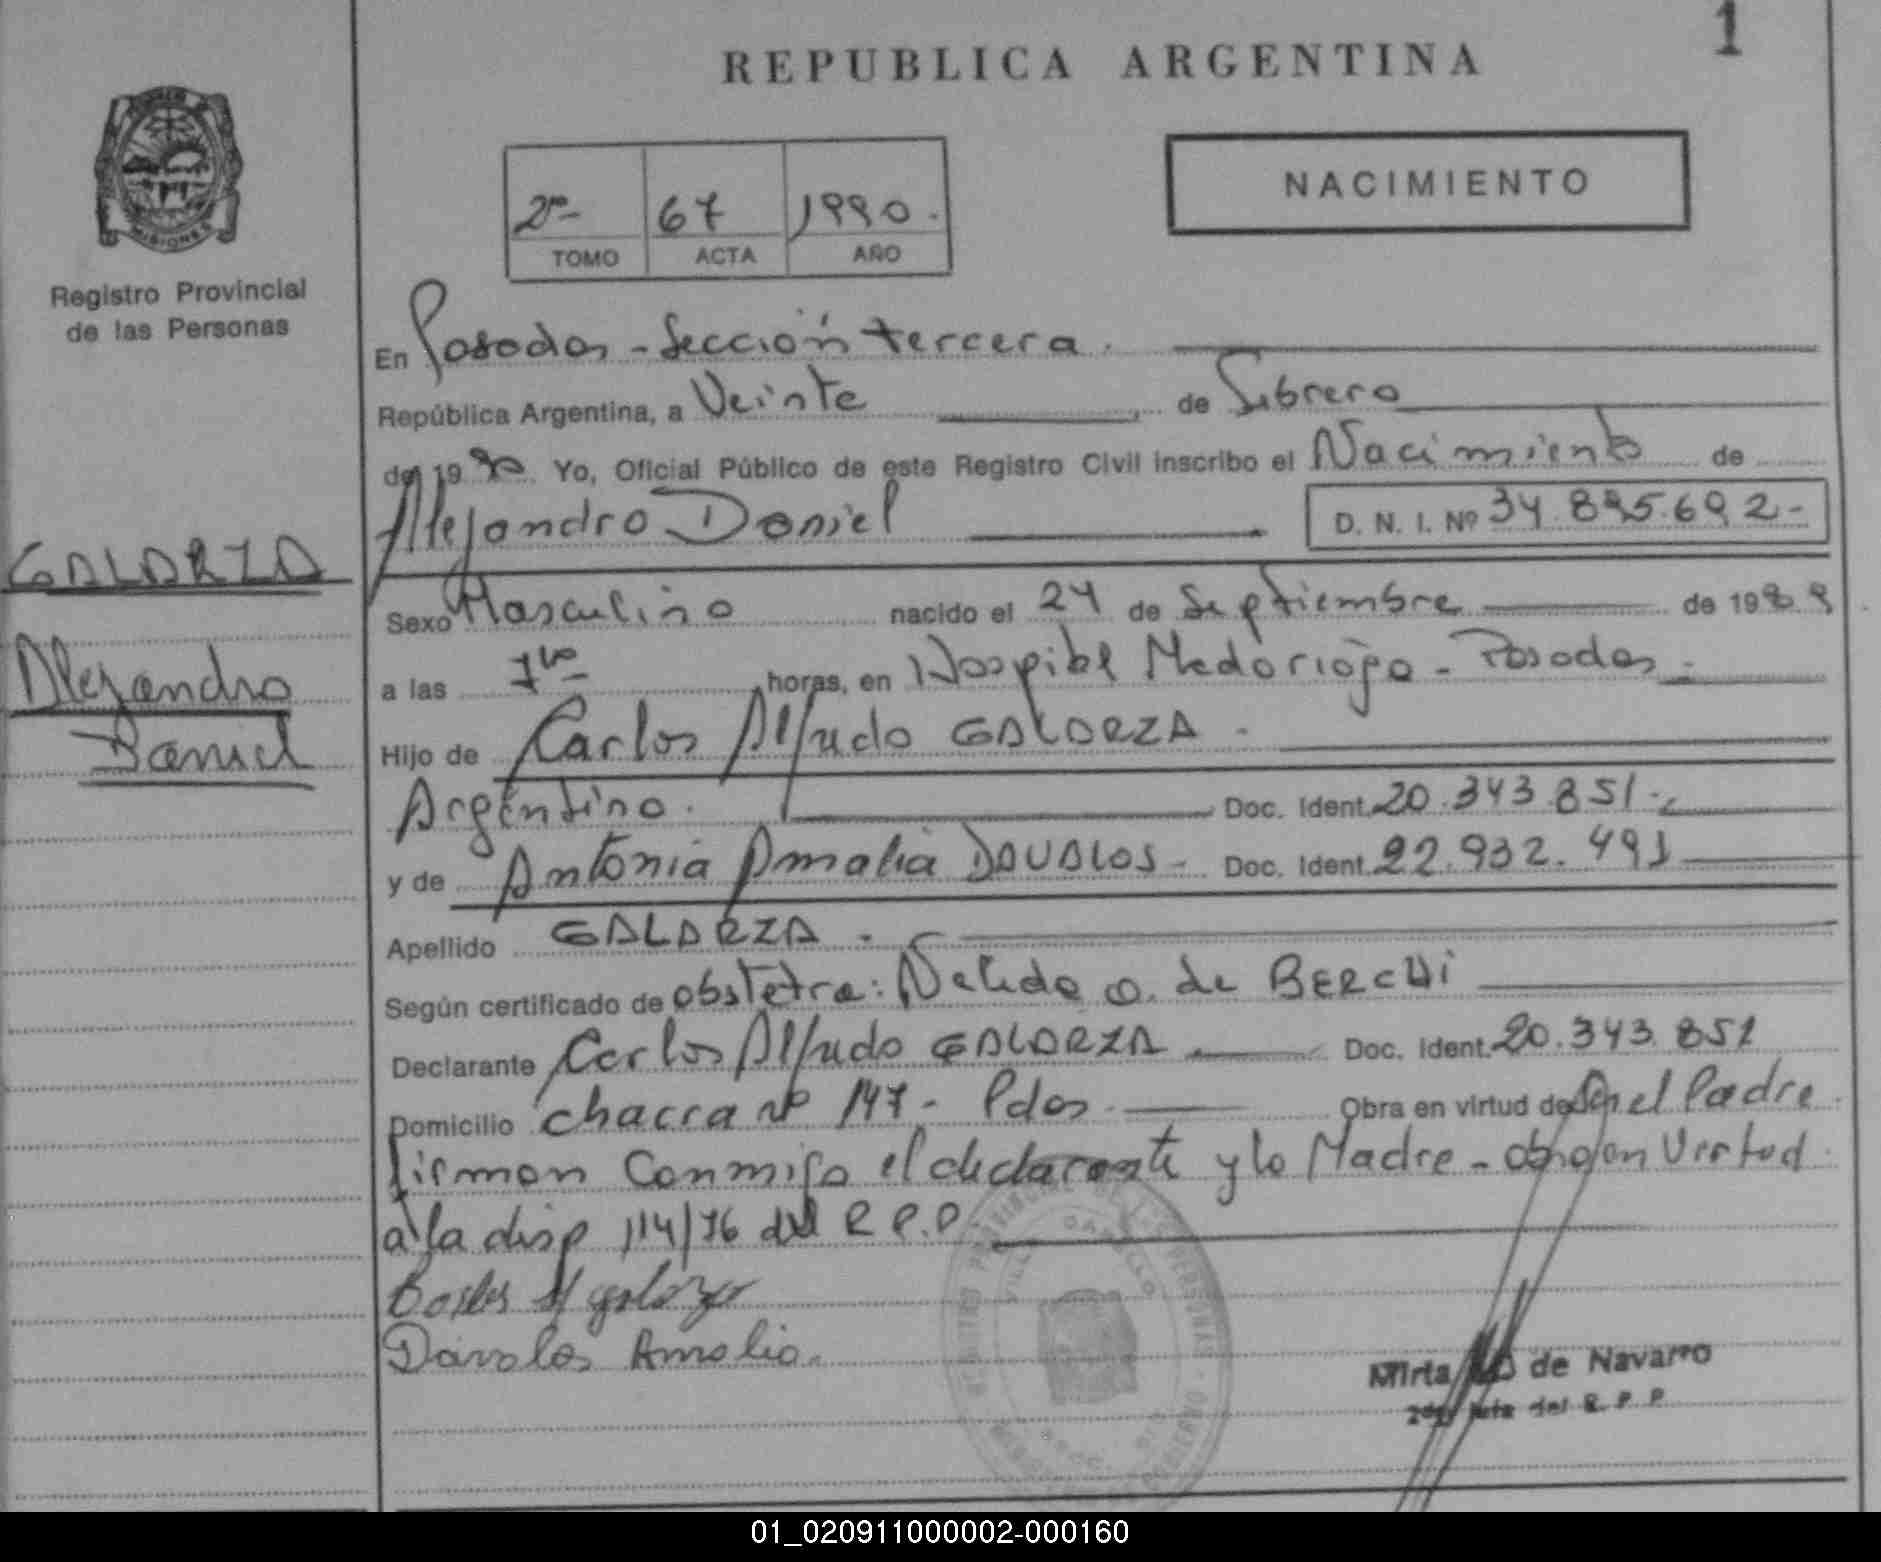 1
REPUBLICA ARGENTINA
NACIMIENTO
2do 67 1990.
TOMO ACTA AÑO
MISIONES
Registro Provincial
de las Personas
GALARZA
Alejandro
Daniel
En Posadas - Sección tercera.
República Argentina, a Veinte de Febrero
de 1990 Yo, Oficial Público de este Registro Civil inscribo el Nacimiento de
Alejandro Daniel D. N. I. Nº 34.895.692-
Sexo Masculino nacido el 24 de Septiembre de 1989.
a las 7 horas, en Hospital Madariaga - Posadas -
Hijo de Carlos Alfredo GALARZA -
Argentino. Doc. Ident. 20.343.851.-
y de Antonia Amalia DAVALOS - Doc. Ident. 22.932.491
Apellido GALARZA .
Según certificado de obstetra: Nelida O. de BERCHI
Declarante Carlos Alfredo GALARZA Doc. Ident. 20.343.851
Domicilio chacra nº 147 - Pdas. Obra en virtud de Ser el Padre.
firman conmigo el declarante y la Madre - obra en Virtud
a la disp 114/76 del R.P.P.
Carlos A galarza
Davalos Amalia.
REGISTRO PROVINCIAL DE LAS PERSONAS
VILLA CABELLO
Mirta de Navarro
Jefa del R. P. P.
01_020911000002-000160